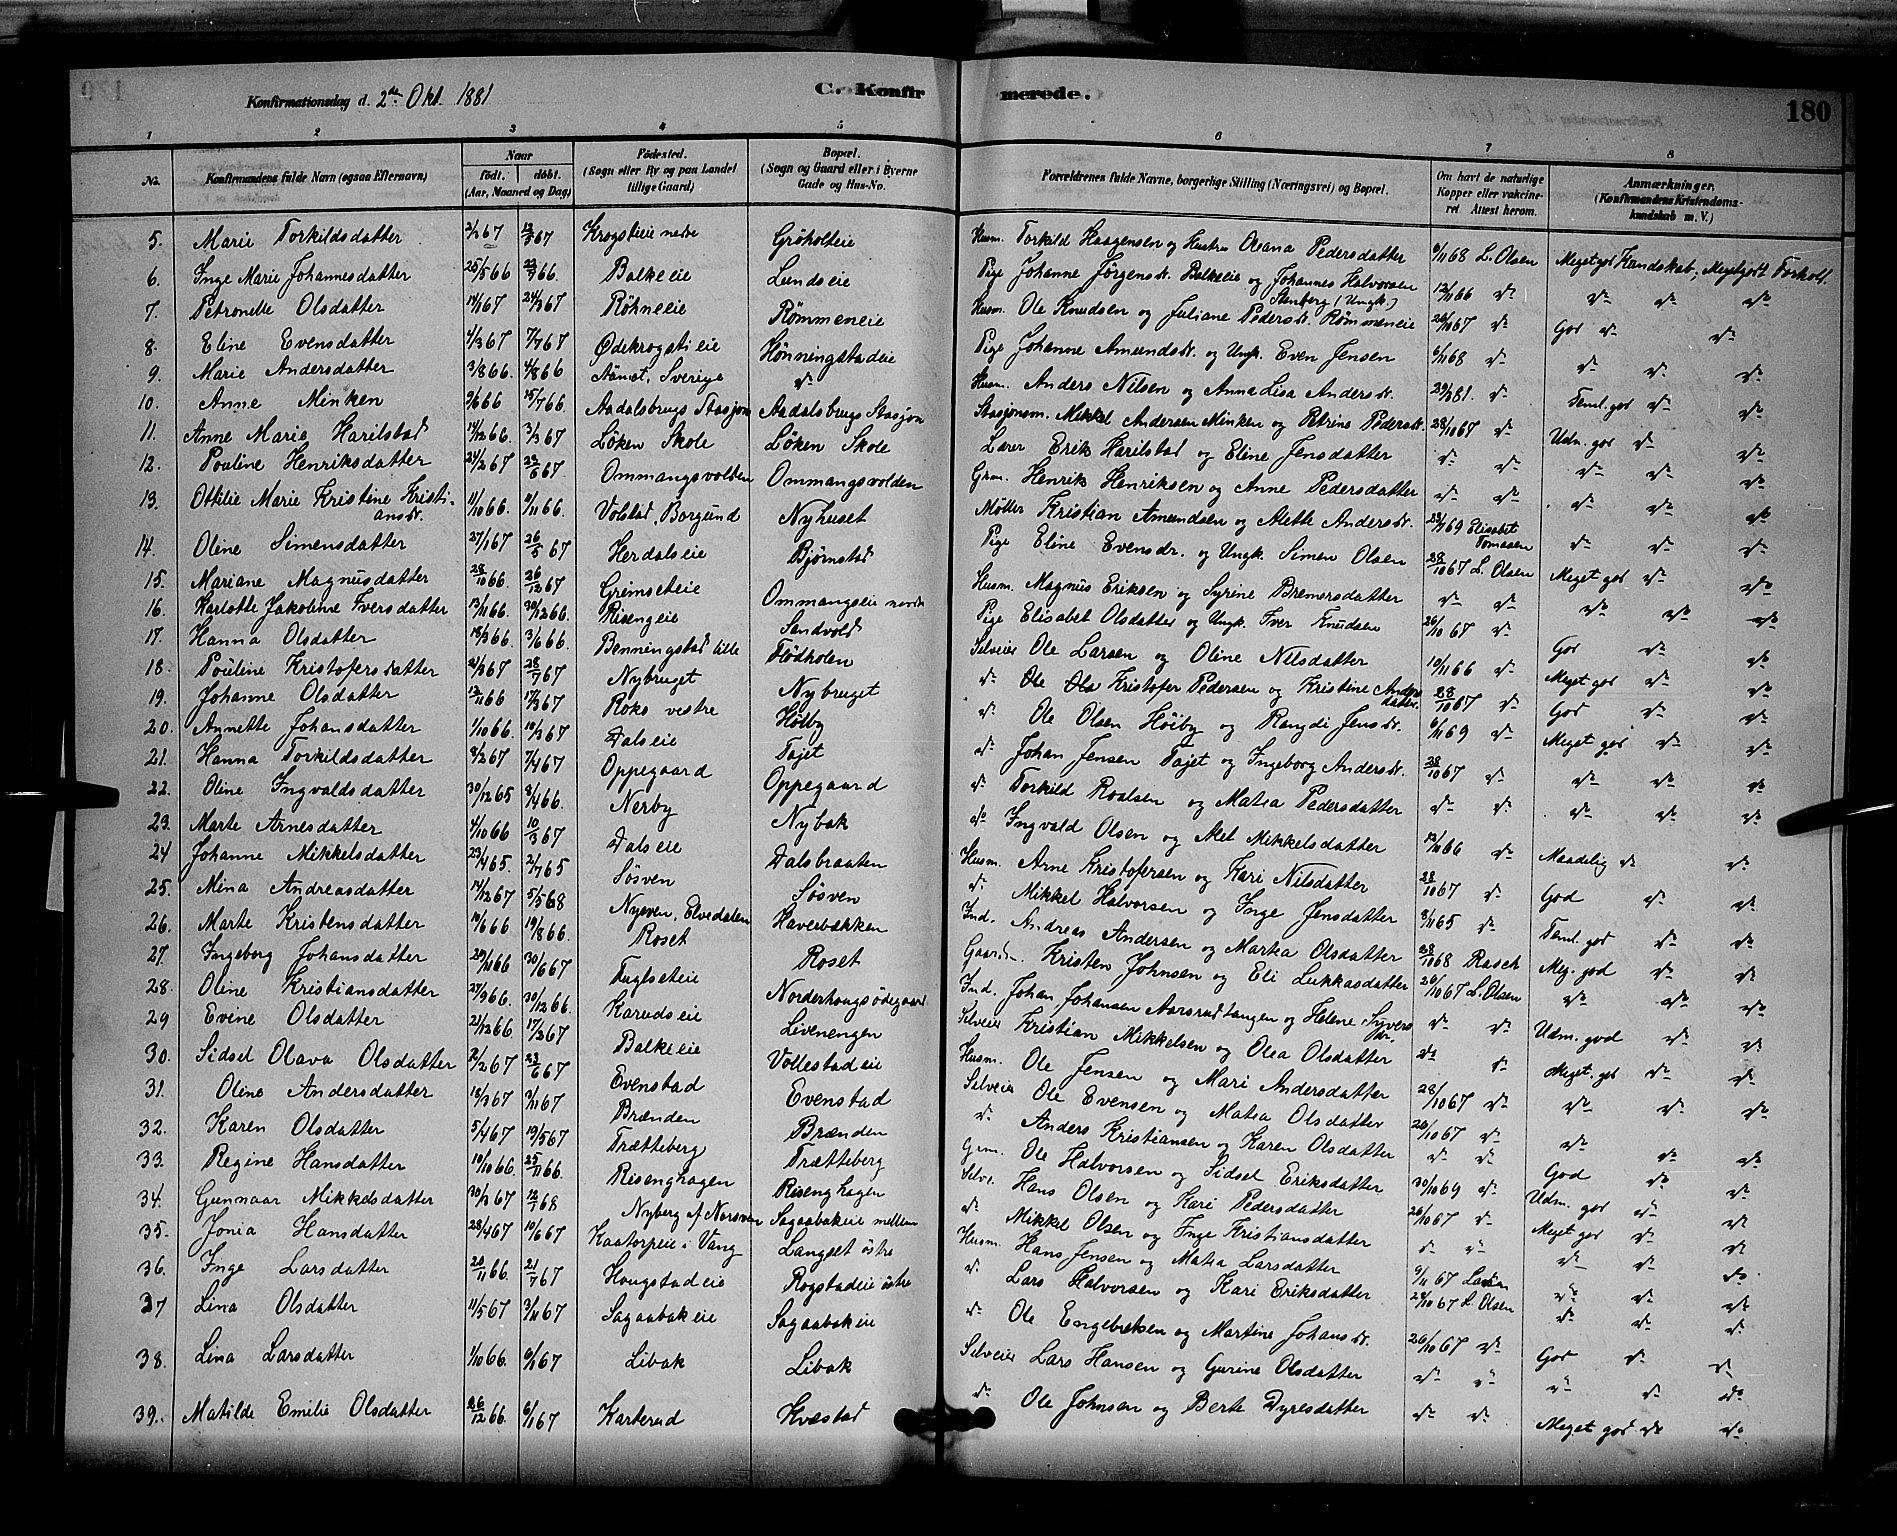 Konfirmationsdag d. 2den Okt. 1881
C. Konfirmerede.
180
1 2 3 4 5 6 7 8
No. Konfirmandens fulde Navn (ogsaa Efternavn) Naar født. døbt. (Aar, Maaned og Dag) Fødested. (Sogn eller By og paa Landet tillige Gaard) Bopæl. (Sogn og Gaard eller i Byerne Gade og Hus-No. Forældrenes fulde Navne, borgerlige Stilling (Næringsvei) og Bopæl. Om havt de naturlige Kopper eller vakcineret Attest herom. Anmærkninger. (Konfirmandens Kristendomskundskab m. V.)
5. Marie Torkildsdatter 2/2 67 Krogstieie nedre Gröholteie Husm. Torkild Haagensen og Hustru Oleana Pedersdatter 6/11 68 L. Olsen Meget god Kundskab, Meget godt Forhold.
6. Inge Marie Johannesdatter 25/5 66 Balkeeie Lundseie Pige Johanne Jørgensdr. Balkeeie og Johannes Halvorsen Stenberg (Ungk.) 12/11 66 do do do do
7. Petronelle Olsdatter 14/1 67 24/3 67 Röhneeie Rømmeneie Husm. Ole Knudsen og Juliane Pedersdr. Rømmeneie 26/10 67 do God do do
8. Eline Evensdatter 4/3 67 7/7 67 Ødekrogstieie Hönningstadeie Pige Johanne Amundsdr. og Ungk. Even Jensen 6/11 68 do do do do
9. Marie Andersdatter 3/8 66. 4/8 66 Sverige do Husm. Anders Nilsen og Anna Lisa Andersdr. 29/3 81. do Teml. god do do
10. Anne Minken 9/6 66 15/7 66. Aadalsbrugs Stasjon Aadalsbrugs Stasjon Stasjonsm. Mikkel Andersen Minken og Petrine Pedersdr. 28/10 67 do Udm. god do do
11. Anne Marie Harilstad 14/12 66. 3/3 67 Løken Skole Løken Skole Lærer Erik Harilstad og Eline Jensdatter do do do do do
12. Pouline Henriksdatter 24/2 67 23/6 67 Ommangsvolden Ommangsvolden Grm. Henrik Henriksen og Anne Pedersdatter do do do do do
13. Ottilie Marie Kristine Kristiansdr. 11/10 66. 11/11 66. Volstad, Borgund Nyhuset Møller Kristian Amundsen og Alette Andersdr. 69 Elisabet Tomasen do do do
14. Oline Simensdatter 27/1 67 26/5 67 Herdalseie Bjørnstad Pige Eline Evensdr. og Ungk. Simen Olsen 28/10 67 L. Olsen Meget god do do
15. Mariane Magnusdatter 28/10 66. 26/12 67 Grimseteie Ommangseie nordre Husm. Magnus Eriksen og Syrine Bremersdatter do do do do do
16. Karlotte Jakobine Iversdatter 13/11 66. 30/12 66. Risengeie Sandvold Pige Elisabet Olsdatter og Ungk. Iver Knudsen 26/10 67 do God do do
17. Hanna Olsdatter 18/3 66. 3/6 66. Benningstad lille Flödholen Selveier Ole Larsen og Oline Nilsdatter 10/11 66 do Meget god do do
18. Pouline Kristofersdatter 21/3 67 28/7 67 Nybruget Nybruget do Ole Ols Kristofer Pedersen og Kristine Andersdatter. 28/10 67 do God do do
19. Johanne Olsdatter 12/11 66 17/3 67 Roko vestre Høiby do Ole Olsen Höiby og Rangdi Jensdr. 6/11 69 do Meget god do do
20. Annette Johansdatter 1/10 66. 10/3 67 Dalseie Tajet do Johan Jensen Tajet og Ingeborg Andersdr. 28/10 67 do do do do
21. Hanna Torkildsdatter 8/2 67 7/4 67 Oppegaard Oppegaard do Torkild Roalsen og Matea Pedersdatter do do do do do
22. Oline Ingvaldsdatter 30/12 65 8/4 66. Nerby Nybak do Ingvald Olsen og Mikkelsdatter 12/11 66 do Maadelig do do
23. Marte Arnesdatter 4/10 66 10/3 67 Dalseie Dalsbraaten Husm. Arne Kristofersen og Kari Nilsdatter 28/10 67 do God do do
24 Johanne Mikkelsdatter 23/4 65. 2/7 65 Søsven Søsven do Mikkel Halvorsen og Inge Jensdatter 8/11 65 do Teml. god do do
25. Mina Andreasdatter 14/12 67 5/5 68 Nysven, Elvedalen Haverbækken Ind. Andreas Andersen og Martea Olsdatter 28/11 68 Rasch Meg. god do do
26. Marte Kristensdatter 10/6 66 19/8 66. Roset Roset Gaardm. Kristen Johnsen og Eli Lukkasdatter 26/10 67 L. Olsen do do do
27. Ingeborg Johansdatter 29/11 66 30/6 67 Fuglseteie Norderhougsødegaard Ind. Johan Johansen Aarsrudtangen og Helene Syversdr. do do Udm. god do do
28. Oline Kristiansdatter 27/9 66. 30/12 66. Karudseie Livenengen Selveier Kristian Mikkelsen og Olea Olsdatter do do Meget god do do
29 Evine Olsdatter 21/12 66. 17/3 67 Balkeeie Vollestadeie Husm. Ole Jensen og Mari Andersdatter 28/10 67 do do do do
30. Sidsel Olava Olsdatter 2/2 67 23/6 67 Evenstad Evenstad Selveier Ole Evensen og Matea Olsdatter 26/10 67 do do do do
31. Oline Andersdatter 18/3 67 3/11 67 Brænden Brænden do Anders Kristiansen og Karen Olsdatter do do God do do
32. Karen Olsdatter 5/4 67 19/5 67 Trætteberg Trætteberg Grm. Ole Halvorsen og Sidsel Eriksdatter 30/10 69 do Udm. god do do
33. Regine Hansdatter 10/10 66. 25/11 66. Risenghagen Risenghagen Selve. Hans Olsen og Kari Pedersdatter 26/10 67 do Meget god do do
34. Gunnaar Mikkelsdatter 30/3 67 12/1 68 Nyberg af Norsven Sagaabakeie mellem do Mikkel Olsen og Inge Kristiansdatter do do do do do
35. Jonia Hansdatter 28/4 67 10/6 67 Kaatorpeie i Vang Langset östre Husm. Hans Jensen og Matea Larsdatter 9/11 67 do do do
36. Inge Larsdatter 20/11 66. 21/7 67 Hougstadeie Rogstadeie östre do Lars Halvorsen og Kari Eriksdatter 28/10 67 L. Olsen do do do
37 Lina Olsdatter 11/5 67 3/11 67 Sagaabakeie Sagaabakeie do Ole Engebretsen og Martine Johansdr. 26/10 67 do God do do
38. Lina Larsdatter 1/10 66. 6/1 67 Libak Libak Selveier Lars Hansen og Gurine Olsdatter do do do do do
39. Matilde Emilie Olsdatter 26/12 66. 6/1 67 Karterud Kvæstad do Ole Johnsen og Berte Dyresdatter do do Meget god do do